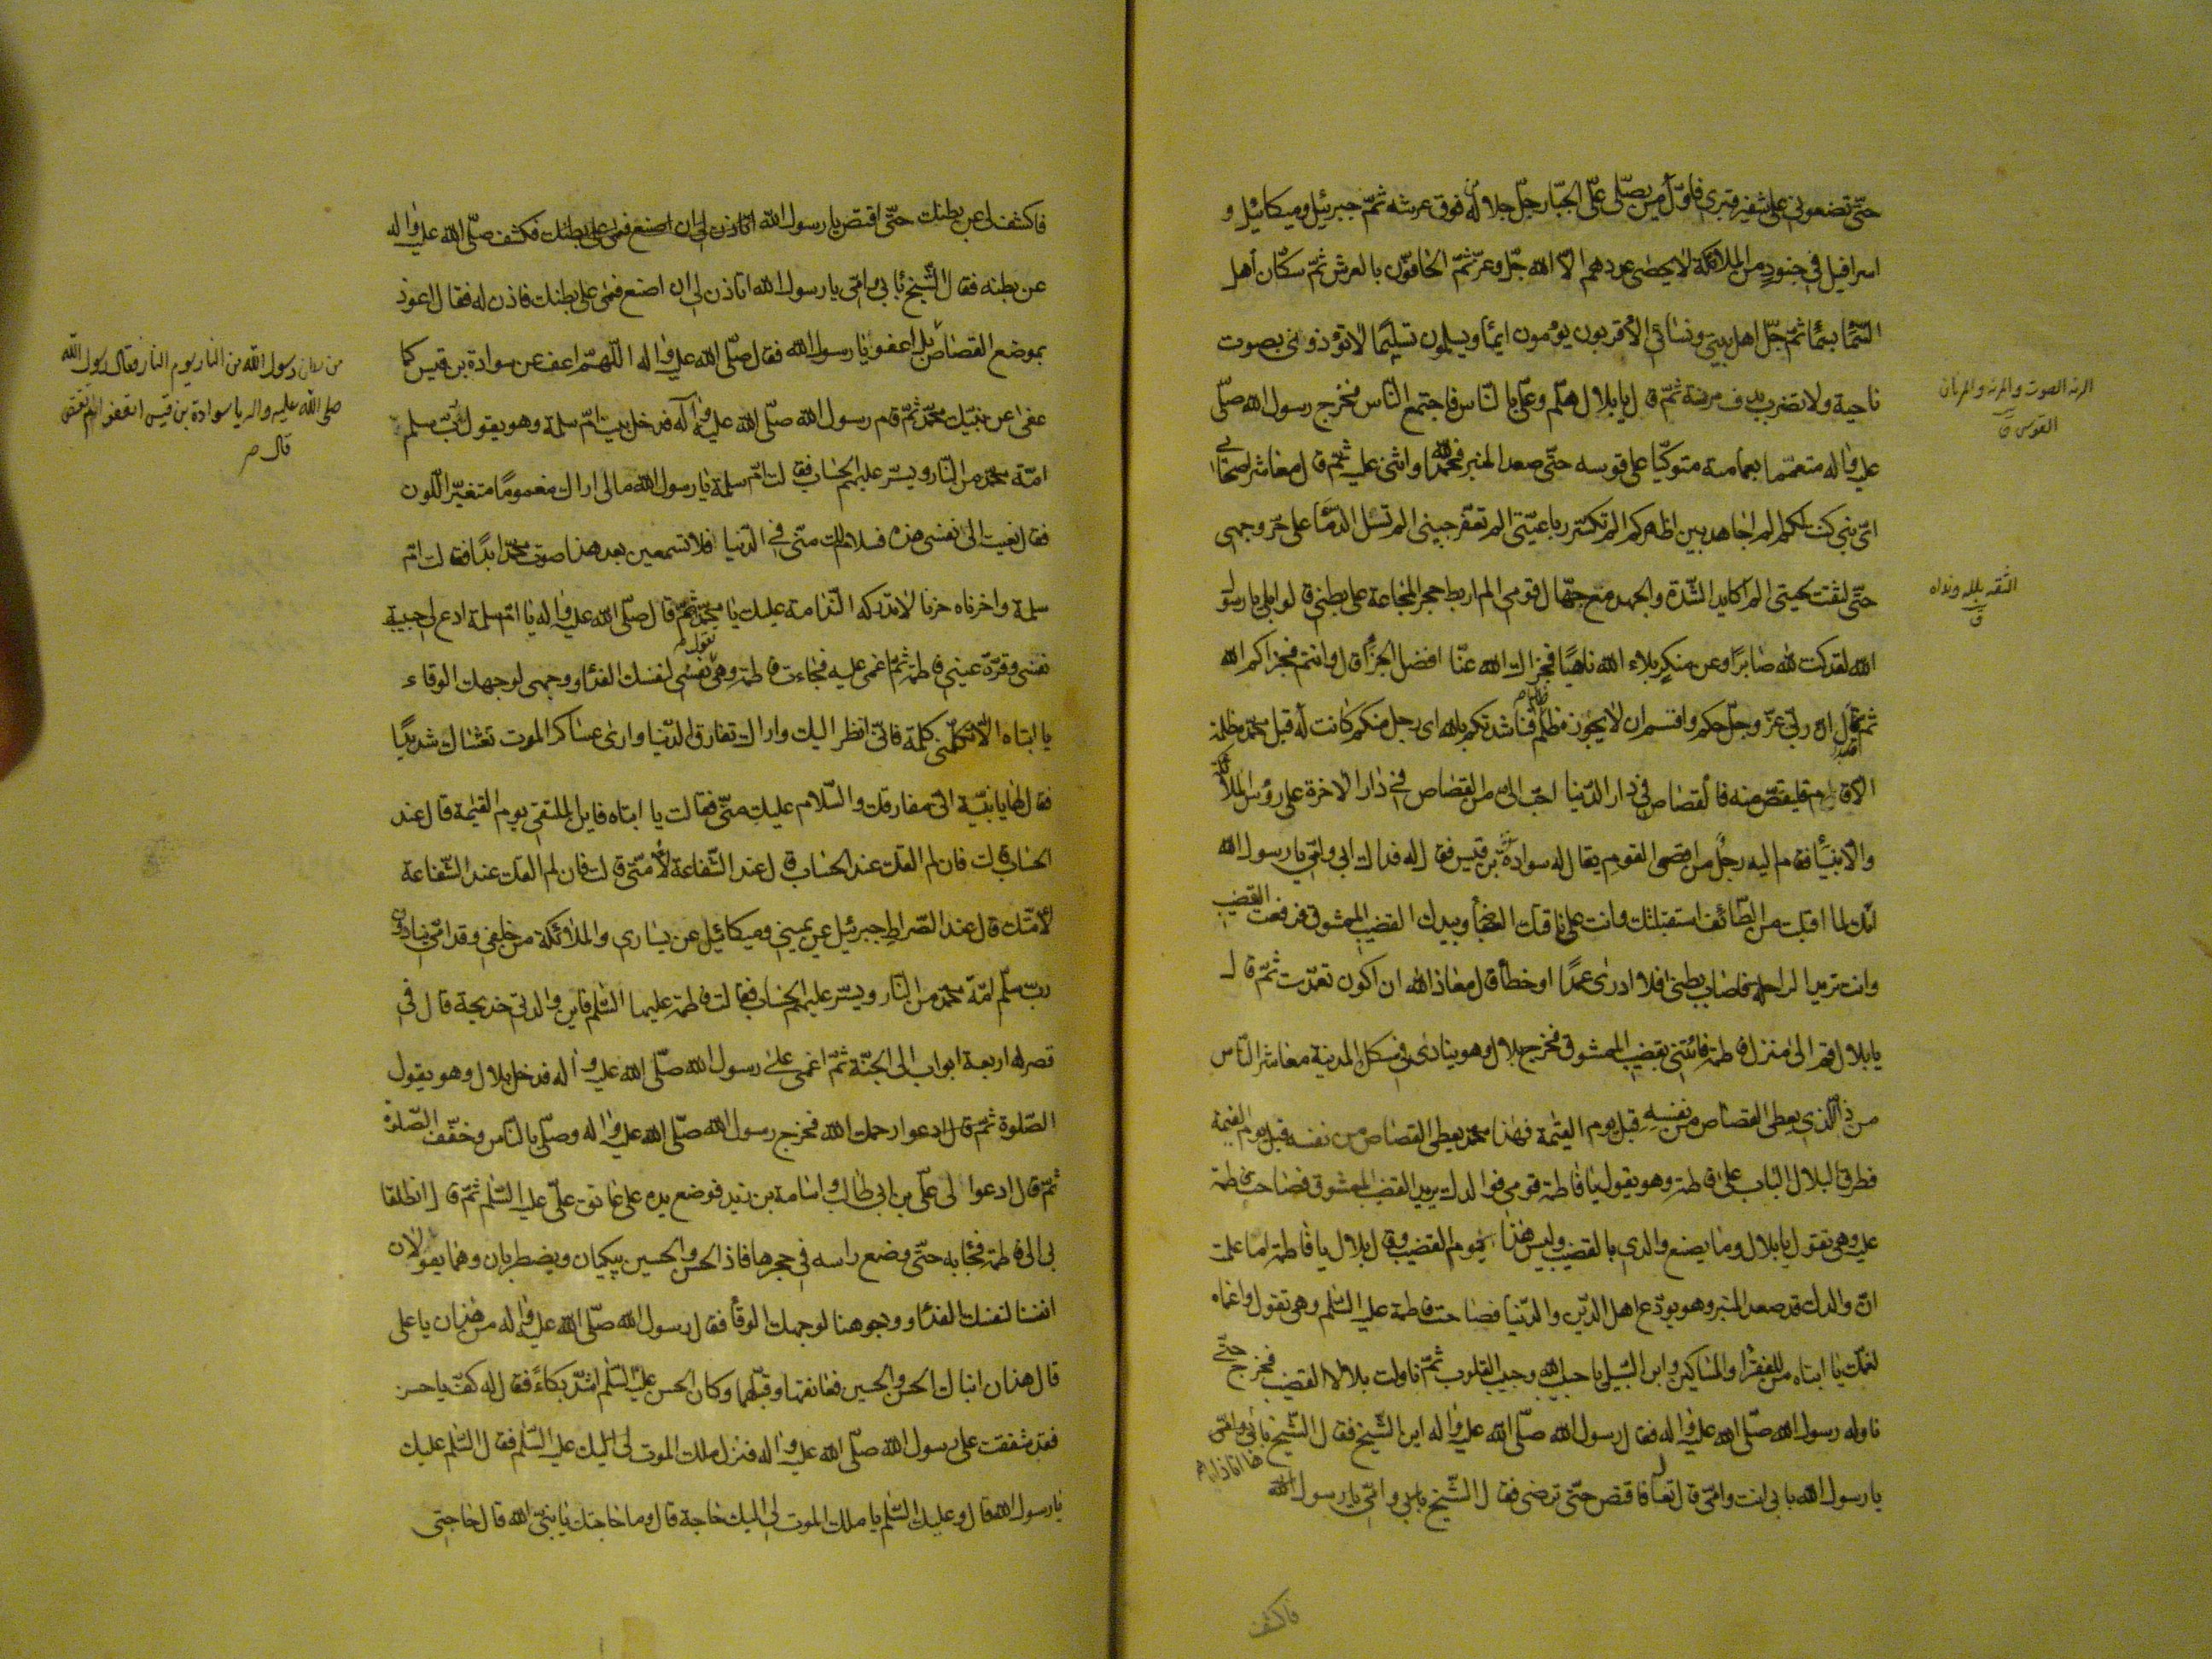 حتّى تضعوني على شفير قبري فاوّل من يصلّي علىّ الجبّار جلّ جلاله من فوق عرشه ثمّ جبرئيل وميكائيل و
اسرافيل في جنود من الملائكة لا يحصى عددهم الّا الله جلّ وعزّ ثمّ الحافّون بالعرش ثمّ سكّان أهل
السّماء سماء ثمّ جلّ اهل بيتي ونسائي الأقربون يومون ايماء ويسلمون تسليما لا تؤذوني بصوت
ناحية ولا تضرب بدف مرنة ثمّ قال يا بلال هلم وعلىّ بالنّاس فاجتمع النّاس فخرج رسول الله صلّى
عليه واله متعمّما بعمامة متوكّيا على قوسه حتّى صعد المنبر فحمد الله واثنى عليه ثمّ قال معاشر اصحابي
اىّ نبي كنت لكم الم اجاهد بين اظهركم الم تكسّر رباعيّتي الم تعفّر جبيني الم تسل الدّماء على حرّ وجهي
حتّى لثقت لحيتي الم اكابد الشّدّة والجهد مع جهّال قومي الم اربط حجر المجاعة على بطني قالوا بلى يا رسول
الله لقد كنت لله صابرا وعن منكر بلاء الله ناهيا فجزاك الله عنّا افضل الجزاء قال وانتم فجزاكم الله
ثمّ قال ان ربّي عزّ وجلّ حكم واقسم ان لا يجوزه ظلم ظالم فناشدتكم بالله اى رجل منكم كانت له قبل محمّد مظلمة
الّا قام فليقتصّ منه فالقصاص في دار الدّنيا احبّ الىّ من القصاص في دار الاخرة على رؤس الملائكة
والأنبياء فقام اليه رجل من اقصى القوم يقال له سوادة بن قيس فقال له فداك ابي وامّي يا رسول الله
انّك لما اقبلت من الطّائف استقبلتك وانت على ناقتك العضباء وبيدك القضيب الممشوق فرفعت القضيب
وانت تريد الراحلة فاصاب بطني فلا ادرى عمدا او خطأ قال معاذ الله ان اكون تعمّدت ثمّ قال
يا بلال قم الى منزل فاطمة فائتني بقضيب الممشوق فخرج بلال وهو ينادي في سكك المدينة معاشر النّاس
من ذا الّذي يعطى القصاص من نفسه قبل يوم القيمة فهذا محمّد يعطى القصاص من نفسه قبل يوم القيمة
فطرق البلال الباب على فاطمة وهو يقول يا فاطمة قومي فوالدك يريد القضيب الممشوق فصاحت فاطمة
عليه وهي تقول يا بلال وما يصنع والدي بالقضيب وليس هذا يوم القضيب وقال بلال يا فاطمة اما علمت
انّ والدك قد صعد المنبر وهو يودّع اهل الدّين والدّنيا فصاحت فاطمة عليه السّلم وهي تقول واغمّاه
لغمّك يا ابتاه من للفقراء والمساكين وابن السّبيل يا حبيب الله وحبيب القلوب ثمّ ناولت بلالا القضيب فخرج حتّى
ناوله رسول الله صلّى الله عليه واله فقال رسول الله صلّى الله عليه واله اين الشّيخ فقال الشّيخ ها انا ذا
يا رسول الله بابي انت وامّي قال تعال فاقتص حتّى ترضى فقال الشّيخ بابي وامّي يا رسول الله
فاكشف
الرنة الصوت والمرنة والمرنان
القوس ق
اللثقه بلله ونداه
ق
فاكشف لي عن بطنك حتّى اقتص يا رسول الله اتاذن لي ان اضع فمي على بطنك فكشف صلّى الله عليه واله
عن بطنه فقال الشّيخ بابي وامّي يا رسول الله اتاذن لي ان اضع فمي على بطنك فاذن له فقال اعوذ
بموضع القصاص بل اعفو يا رسول الله فقال صلّى الله عليه واله اللّهمّ اعف عن سوادة بن قيس كما
عفى عن نبيّك محمّد ثمّ قام رسول الله صلّى الله عليه وآله فدخل بيت امّ سلمة وهو يقول ربّ سلم
امّة محمّد من النّار ويسّر عليهم الحساب فقالت امّ سلمة يا رسول الله مالي اراك مغموما متغيّر اللّون
فقال نعيت الى نفسي هذه فسلام لك منّي في الدّنيا فلا تسمعين بعد هذا صوت محمّد ابدا فقالت امّ
سلمة واحزناه حزنا لا تدركه النّدامة عليك يا محمّد ثمّ قال صلّى الله عليه واله يا امّ سلمة ادع لي حبيبة
نفسي وقرّة عيني فاطمة ثمّ اغمى عليه فجاءت فاطمة وهي تقول نفسي لنفسك الفداء ووجهي لوجهك الوقاء
يا ابتاه الا تكلّمني كلمة فانّي انظر اليك واراك تفارق الدّنيا وارى عساكر الموت تغشاك شديدا
فقال لها يا بنيّة انّي مفارقك والسّلام عليك منّي فقالت يا ابتاه فاين الملتقى يوم القيمة قال عند
الحساب قالت فان لم القك عند الحساب قال عند الشّفاعة لأمّتي قالت فان لم القك عند الشّفاعة
لأمّتك قال عند الصّراط جبرئيل عن يميني وميكائيل عن يساري والملائكة من خلفي وقدامي ينادون
ربّ سلّم امّة محمّد من النّار ويسّر عليهم الحساب فقالت فاطمة عليها السّلم فاين والدتي خديجة قال في
قصر له اربعة ابواب الى الجنّة ثمّ اغمى على رسول الله صلّى الله عليه واله فدخل بلال وهو يقول
الصّلوة ثمّ قال ادعوا رحمك الله فخرج رسول الله صلّى الله عليه واله وصلّى بالنّاس وخفّف الصّلوة
ثمّ قال ادعوا لي علىّ بن ابي طالب واسامة بن زيد فوضع يده على عاتق علىّ عليه السّلم ثمّ قال انطلقا
بي الى فاطمة فجاءا به حتّى وضع راسه في حجرها فاذا الحسن والحسين يبكيان ويضطربان وهما يقولان
انفسنا لنفسك الفداء ووجوهنا لوجهك الوقاء فقال رسول الله صلّى الله عليه واله من هذان يا على
قال هذان ابناك الحسن والحسين فعانقهما وقبّلهما وكان الحسن عليه السّلم اشدّ بكاء فقال له كفّ يا حسن
فقد شققت على رسول الله صلّى الله عليه واله فنزل ملك الموت عليه السّلم فقال السّلم عليك
يا رسول الله قال وعليك السّلم يا ملك الموت لي اليك حاجة قال وما حاجتك يا نبيّ الله قال حاجتي
رسول الله من النار يوم النار فقال رسول الله
صلى الله عليه واله يا سوادة بن قيس اتعفو ام تقتص
قال